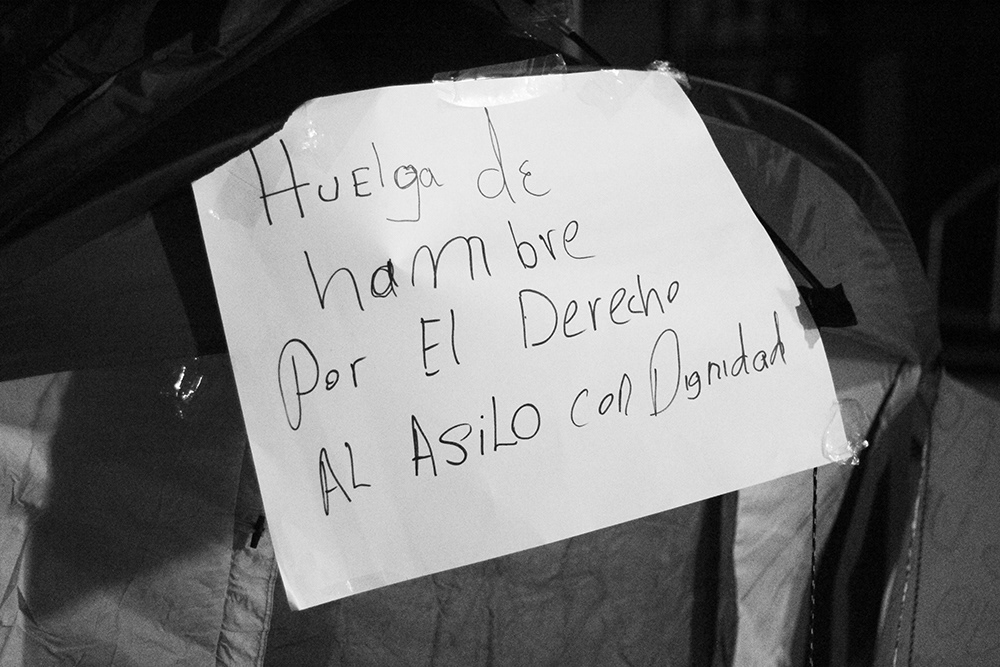 HuElga dE
hambre
Por El Derecho
AL ASiLO con Dignidad